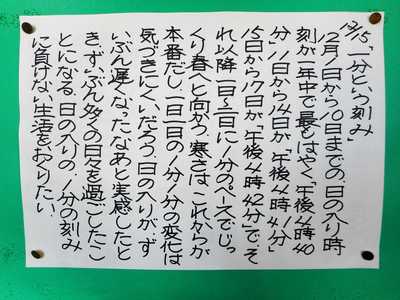 12/15「一分という刻み」
12月1日から10日までの、日の入り時
刻が一年中で最もはやく「午後4時40
分」11日から14日が「午後4時41分」
15日から17日が「午後4時42分」で、そ
れ以降一日～二日に1分のペースでじっ
くり春へと向かう。寒さは、これからが
本番だし、一日一日の1分1分の変化は
気づきにくいだろう。日の入りが、ず
いぶん遅くなったなあと実感したと
き、ずいぶん多くの日々を過ごしたこ
とになる。日の入りの、1分の刻み
に負けない生活をおくりたい。